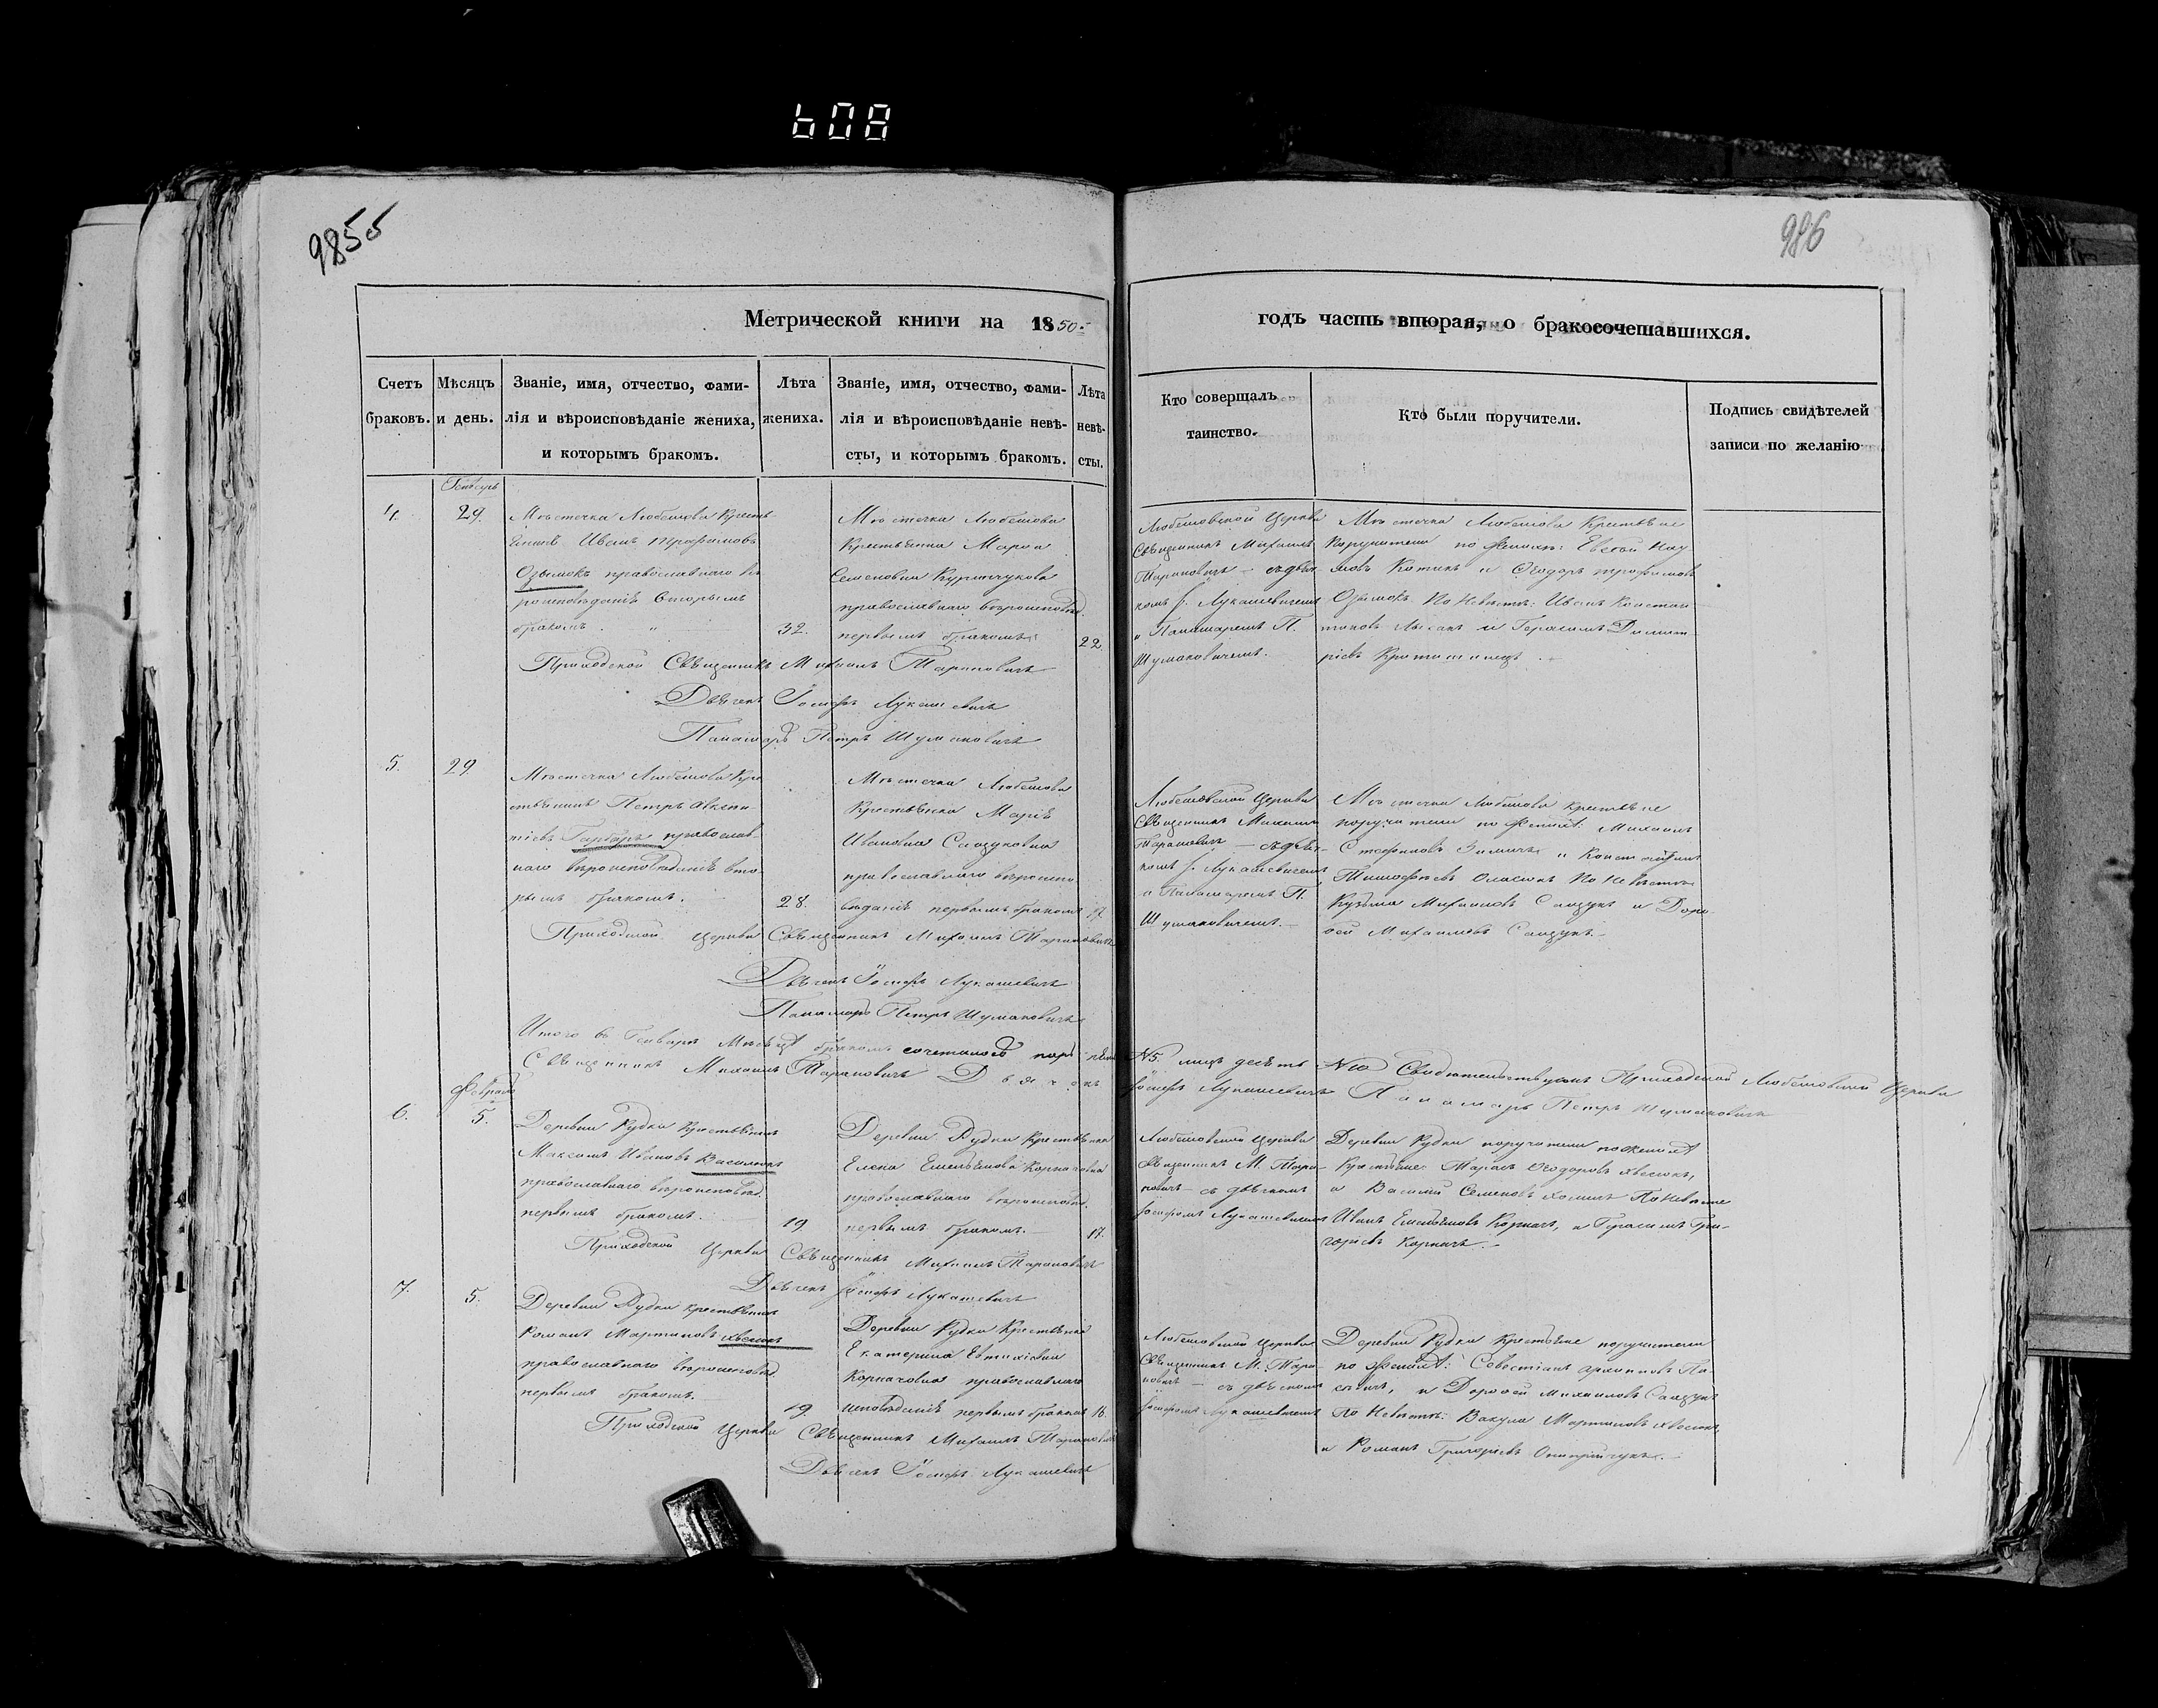 608
985об
986
Метрической книги на 1850.
годъ часть вторая, о бракосочетавшихся.
Счетъ браковъ.
Мѣсяцъ и день.
Званіе, имя, отчество, фами-
лія и вѣроисповѣданіе жениха,
и которымъ бракомъ.
Лѣта жениха.
Званіе, имя, отчество, фами-
лія и вѣроисповѣданіе невѣ-
сты, и которымъ бракомъ.
Лѣта
невѣ-
сты.
Кто совершалъ
таинство.
Кто были поручители.
Подпись свидѣтелей
записи по желанію
Генварь
4.
29.
Мѣстечка Любешова Кресть-
Иванъ Трофимовъ
Озымокъ православнаго вѣ
роисповѣданія вторымъ
бракомъ.
32.
Мѣстечка Любешова
Крестьянка Марія
Семеновна
православнаго вѣроисповѣд.
первымъ бракомъ
22.
Любешовской Церкви
Священникъ Михаилъ
Тарановичъ – съ дьяч-
комъ І. Лукашевичемъ
и Панамаремъ П.
Шумаковичемъ.
Мѣстечка Любешова Крестьяне
Поручители по женихѣ: Евсей Нау
мовъ и Ѳеодоръ Трофимовъ
Озымокъ. По невѣстѣ: Иванъ Констан
тиновъ Лысакъ и Герасимъ Димит
ріевъ
Приходской Священникъ Михаилъ Тарановичъ
Дьячекъ Іосифъ Лукашевичъ
Панамарь Петръ Шумаковичъ
5.
29
Мѣстечка Любешова Кре
стьянинъ Петръ Авксен
тіевъ Гарбаръ православ-
наго вѣроисповѣданія вто-
рымъ бракомъ.
28.
Мѣстечка Любешова
Крестьянка Марія
Ивановна Сацуковна
православнаго вѣроиспо
вѣданія первымъ бракомъ
17.
Любешовской Церкви
Священникъ Михаилъ
Тарановичъ – съ дьяч-
комъ І. Лукашевичемъ
и Панамаремъ П.
Шумаковичемъ.
Мѣстечка Любешова Крестьяне
поручители по женихѣ: Михаилъ
Стефановъ и
Тимофѣевъ По невѣстѣ
Кузьма Михаиловъ Сацукъ и Доро
фей Михаиловъ Сацукъ.
Приходской Церкви Священникъ Михаилъ Тарановичъ
Дьячекъ Іосифъ Лукашевичъ
Панамарь Петръ Шумаковичъ
Итого въ Генварѣ Мѣсяцѣ бракомъ сочеталось паръ пять №5. лицъ десять №10 Свидетельствуемъ Приходской Любешовской Церкви
Священникъ Михаилъ Тарановичъ Дьячекъ Іосифъ Лукашевичъ Панамарь Петръ Шумаковичъ
Февраль
6.
5.
Деревни Рудки Крестьянинъ
Максимъ Ивановъ Василюкъ
православнаго вѣроисповѣд.
первымъ бракомъ.
19
Деревни Рудки Крестьянка
Елена Емельянова Корначовна
православнаго вѣроисповѣд.
первымъ бракомъ.
17.
Любешовской Церкви
Священникъ М. Тара-
новичъ – съ дьячкомъ
Іосифомъ Лукашевичемъ
Деревни Рудки поручители по женихѣ
Крестьяне: Тарасъ Ѳеодоровъ Хвесюкъ,
и Василій Семеновъ Хомичъ По невѣстѣ
Иванъ Емельяновъ Корначъ, и Герасимъ Гри-
горіевъ Корначъ.
Приходской Церкви Священникъ Михаилъ Тарановичъ
Дьячекъ Іосифъ Лукашевичъ
7.
5.
Деревни Рудки Крестьянинъ
Романъ Мартиновъ Хвесюкъ
православнаго вѣроисповѣд.
первымъ бракомъ.
19.
Деревни Рудки Крестьянка
Екатерина Евтихіевна
Корначовна православнаго
исповѣданія первымъ бракомъ
16.
Любешовской Церкви
Священникъ М. Тара-
новичъ – съ дьячкомъ
Іосифомъ Лукашевичемъ
Деревни Рудки Крестьяне поручители
по женихѣ:
и Дорофей Михаиловъ Сацукъ
По невѣстѣ: Вакула Мартиновъ Хвесюкъ,
и Романъ Григоріевъ
Приходской Церкви Священникъ Михаилъ Тарановичъ
Дьячекъ Іосифъ Лукашевичъ